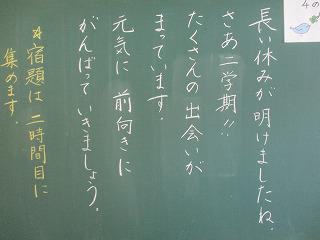 長い休みが明けましたね。
さあ二学期!!
たくさんの出会いが
まっています。
元気に前向きに
がんばっていきましょう。
*宿題は二時間目に
集めます。
4の